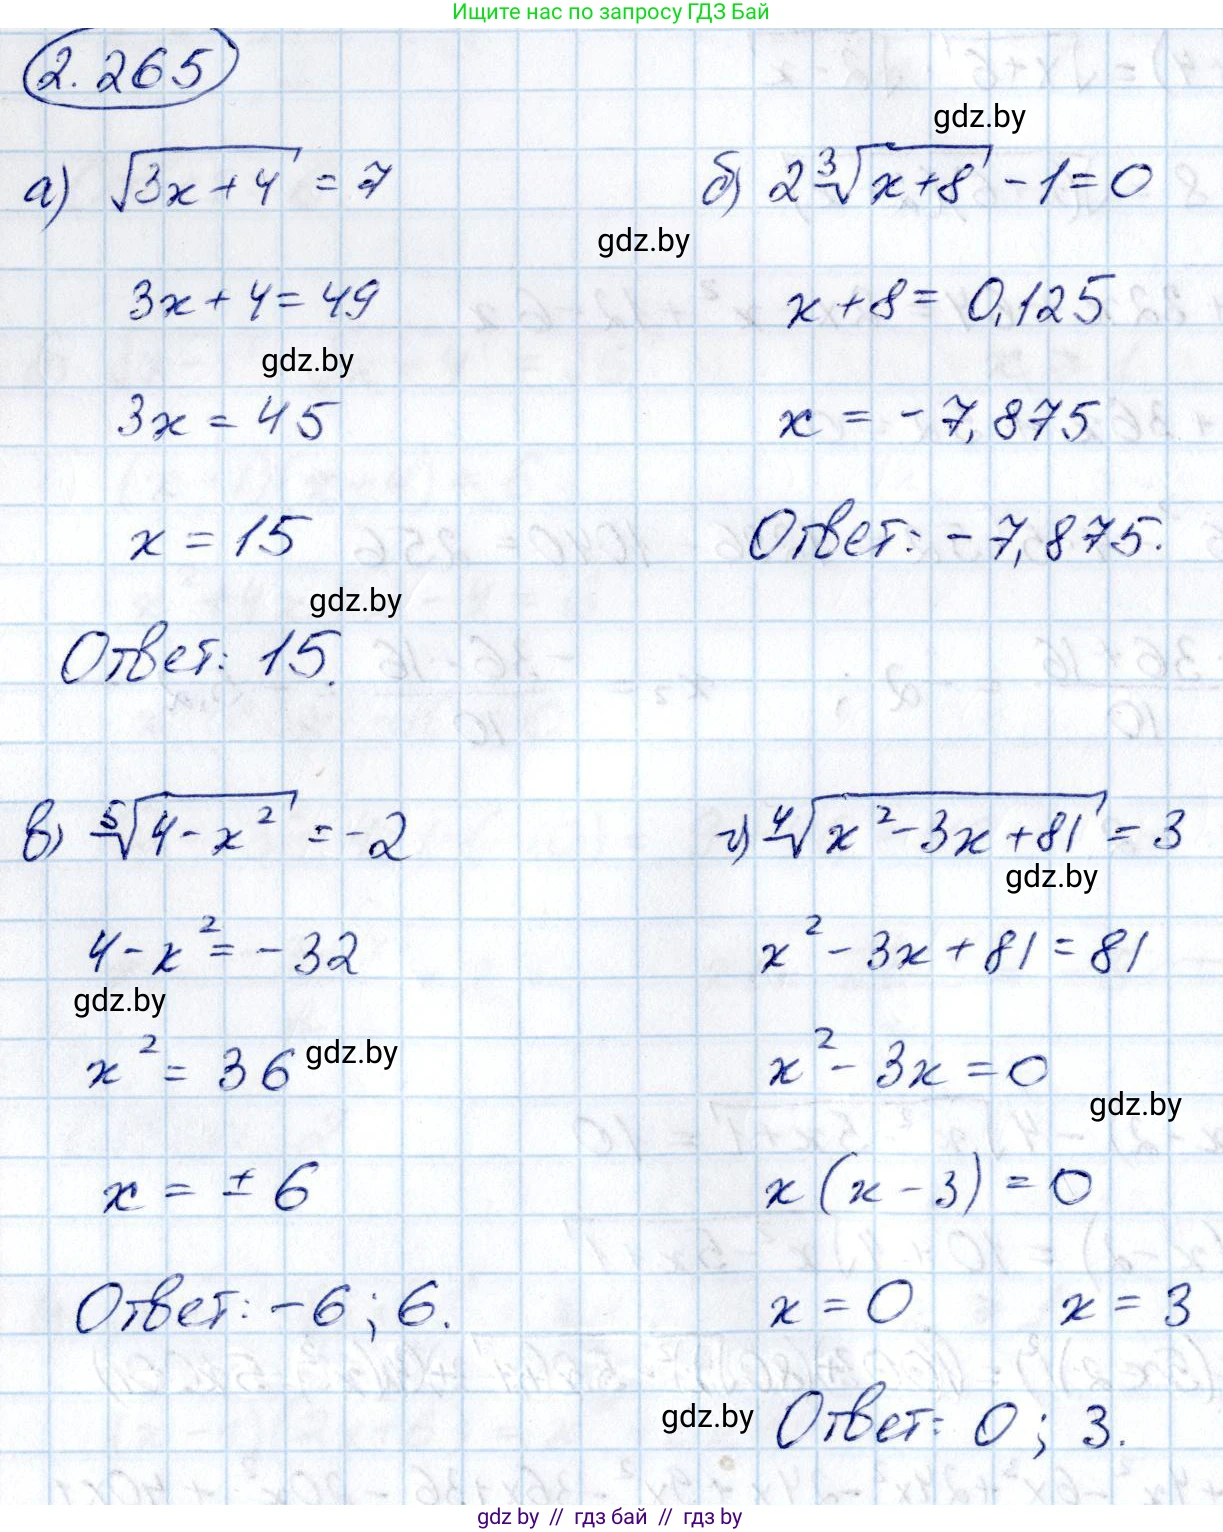 Ищите нас по запросу ГДЗ Бай
2.265
gdz.by
а) √(3x+4) = 7
б) 2∛(x+8) - 1 = 0
gdz.by
3x + 4 = 49
x + 8 = 0,125
gdz.by
3x = 45
x = -7,875
x = 15
Ответ: -7,875.
gdz.by
Ответ: 15.
в) ⁵√(4-x²) = -2
г) ⁴√(x²-3x+81) = 3
gdz.by
4 - x² = -32
x² - 3x + 81 = 81
gdz.by
x² = 36
gdz.by
x² - 3x = 0
gdz.by
x = ±6
x(x-3) = 0
Ответ: -6; 6.
x = 0 x = 3
gdz.by
Ответ: 0; 3.
gdz.by // гдз бай // гдз by